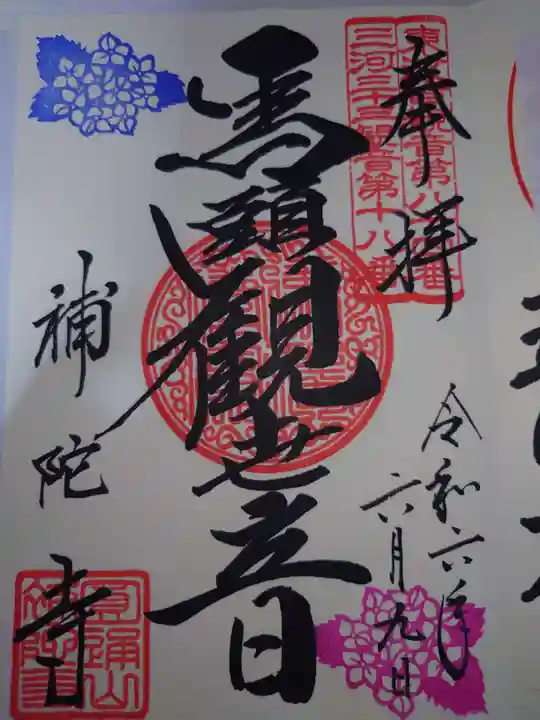 奉拝
三河三十三観音第十八番
令和六年
六月九日
馬頭観世音
補陀寺